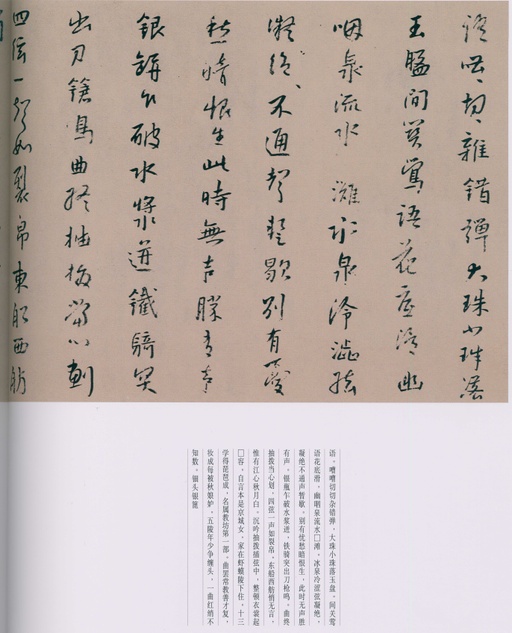 語嘈〻切〻雜錯彈大珠小珠落
玉盤間関鶯語花底滑幽
咽泉流水灘冰泉冷澁弦
凝絶〻不通聲暫歇別有憂
愁暗恨生此時無声勝有声
銀缾乍破水漿迸鐵騎突
出刀鎗鳴曲終抽撥當心劃
四弦一聲如裂帛東船西舫
语。嘈嘈切切杂错弹，大珠小珠落玉盘。间关莺
语花底滑，幽咽泉流水□滩。冰泉冷涩弦凝绝，
凝绝不通声暂歇。别有忧愁暗恨生，此时无声胜
有声。银瓶乍破水浆迸，铁骑突出刀枪鸣。曲终
抽拨当心划，四弦一声如裂帛。东船西舫悄无言，
惟有江心秋月白。沉吟抽拨插弦中，整顿衣裳起
□容。自言本是京城女，家在虾蟆陵下住。十三
学得琵琶成，名属教坊第一部。曲罢常教善才复，
妆成每被秋娘妒。五陵年少争缠头，一曲红绡不
知数。钿头银篦